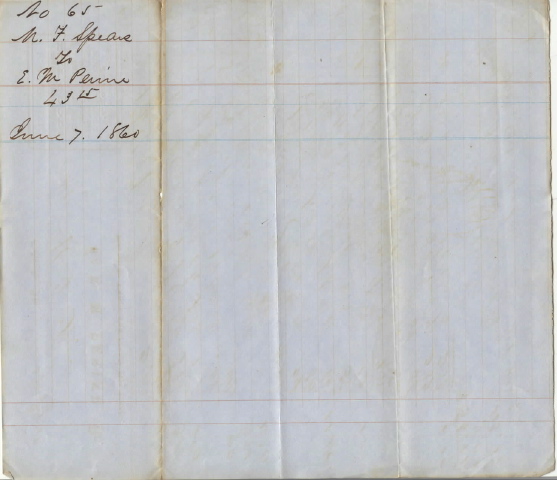 No 65
M. F. Speare
To
E. M Perine
43 15
June 7. 1860